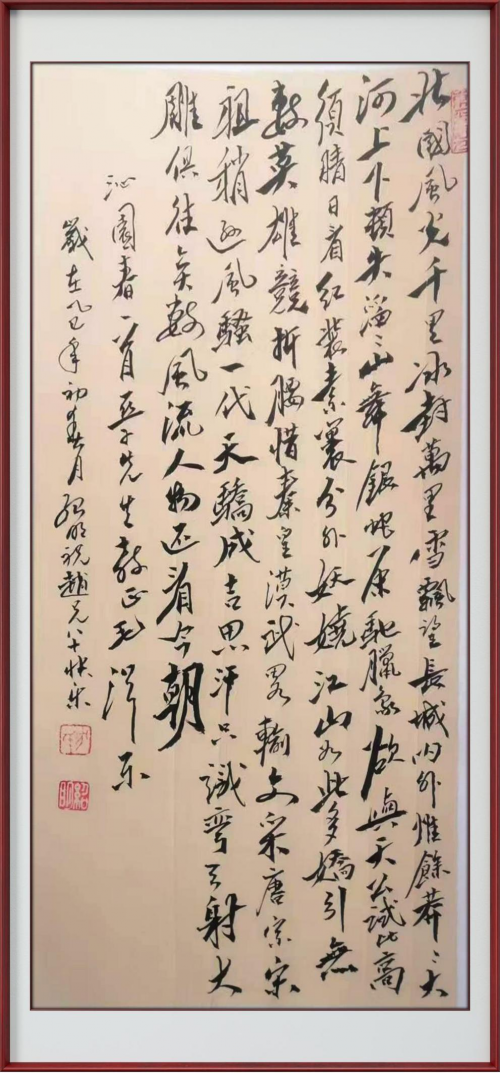 北國風光千里冰封萬里雪飄望長城內外惟餘莽〻大
河上下頓失滔〻山舞銀蛇原馳臘象欲與天公試比高
須晴日看紅裝素裹分外妖嬈江山如此多嬌引無
數英雄競折腰惜秦皇漢武略輸文采唐宗宋
祖稍遜風騷一代天驕成吉思汗只識彎弓射大
雕俱往矣數風流人物还看今朝
沁園春一首亞子先生教正毛澤东
歲在乙巳年初春月紹明祝趙兄八十快乐